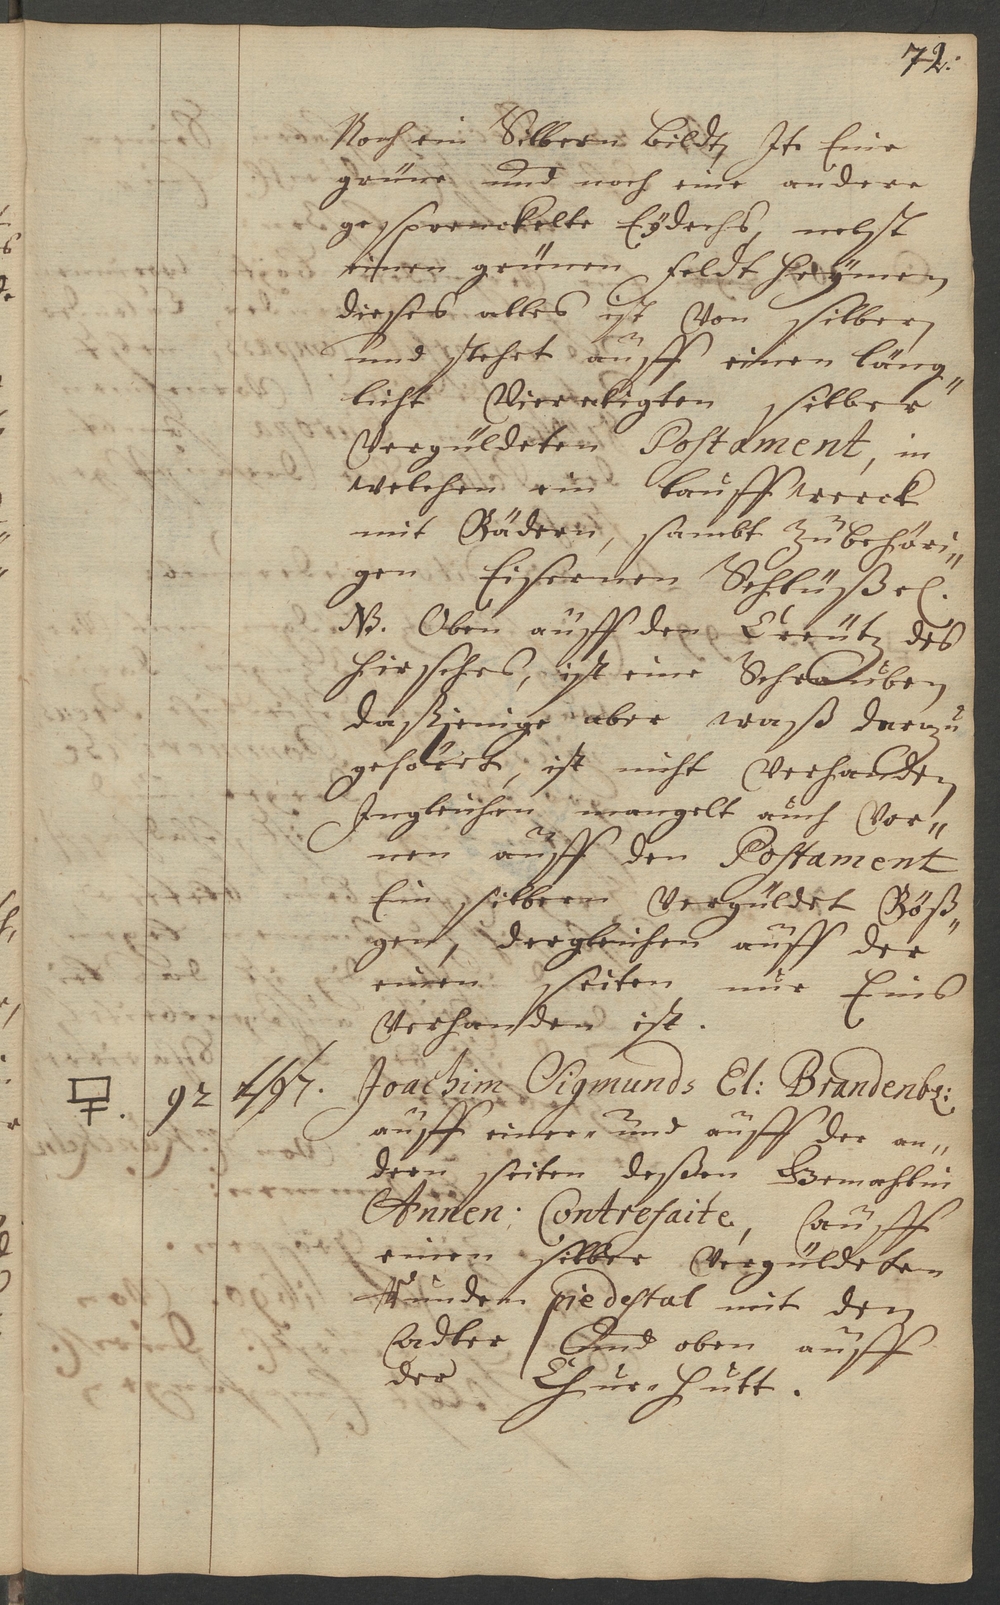 72.
Noch ein Silbern bildt, It. Eine
grüne und noch eine andere
gesprenckelte Eydechs, nebst
einen grünen feldt Heymen,
dieses alles ist von silber,
und stehet auff einen läng„
licht Viereckigten silber
Vergüldeten Postament, in
welchen ein Lauffwerck
mit Rädern, sambt zubehöri„
gen Eisernen Schlüßel.
NB. Oben auff den Creutz des
Hirsches, ist eine Schrauben,
daßjenige aber waß darzu
gehöret, ist nicht Verhanden,
Ingleichen mangelt auch Vor„
nen auff den Postament
Ein silbern Vergüldet Röß„
gen, dergleichen auff der
einen seiten nur Eins
Verhanden ist.
92 Joachim Sigmunds El: Brandenbg:
auff einer- und auff der an„
dern seiten deßen Gemahlin
Annen: Contrefaite, auff
einen silber Vergüldeten
Runden piedestal mit den
Adler Und oben auff
der Chur-Hutt.